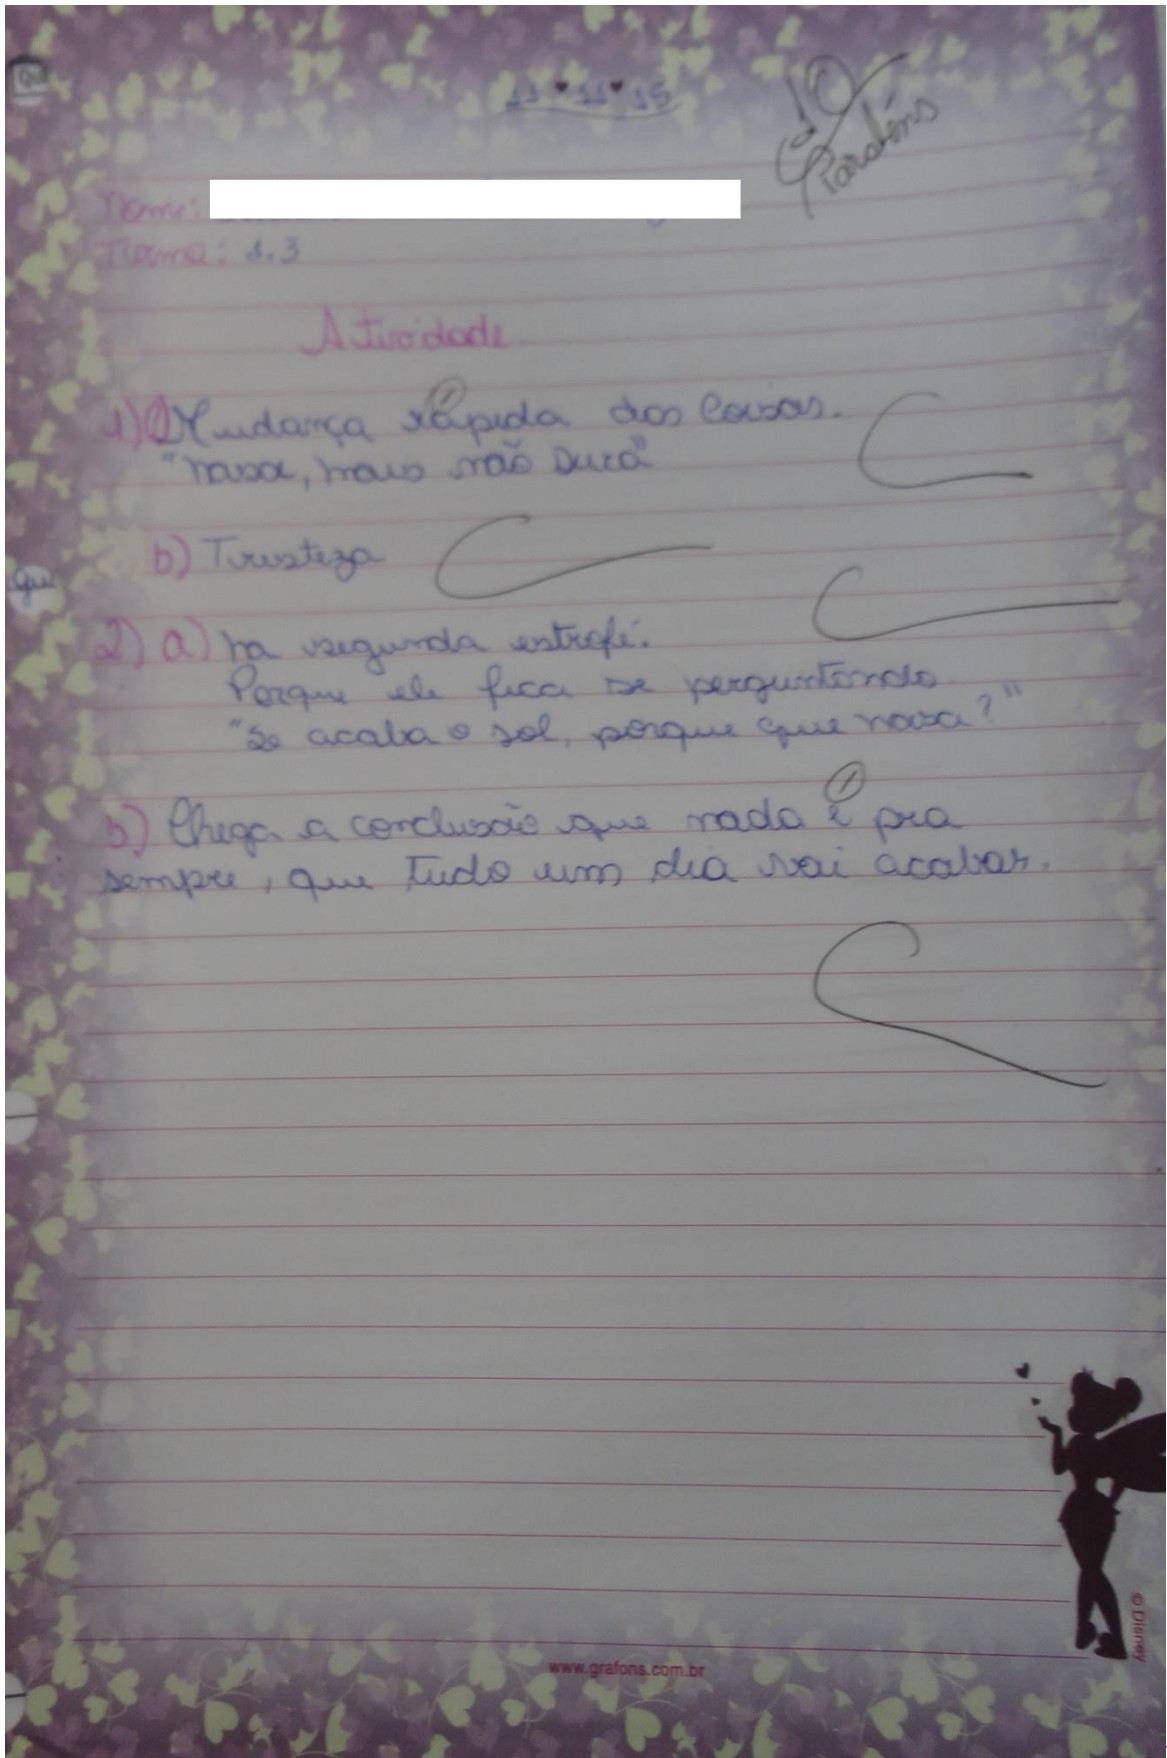 11 11 15
10
Parabéns
Nome:
Turma: 1.3
Atividade
1) a) Mudança rápida das coisas.
"nasce, mais não Dura"
b) Tristeza
2) a) na segunda estrofe.
Porque ele fica se perguntando
"Se acaba o sol, porque que nasce?"
b) Chega a conclusão que nada é pra
sempre, que tudo um dia vai acabar.
© Disney
www.grafons.com.br